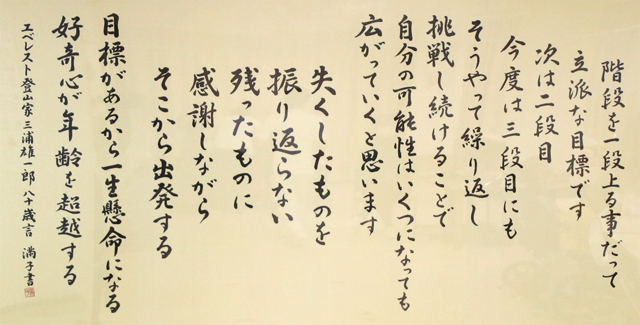 階段を一段上る事だって
立派な目標です
次は二段目
今度は三段目にも
そうやって繰り返し
挑戦し続けることで
自分の可能性はいくつになっても
広がっていくと思います
失くしたものを
振り返らない
残ったものに
感謝しながら
そこから出発する
目標があるから一生懸命になる
好奇心が年齢を超越する
エベレスト登山家 三浦雄一郎 八十歳言 満子書